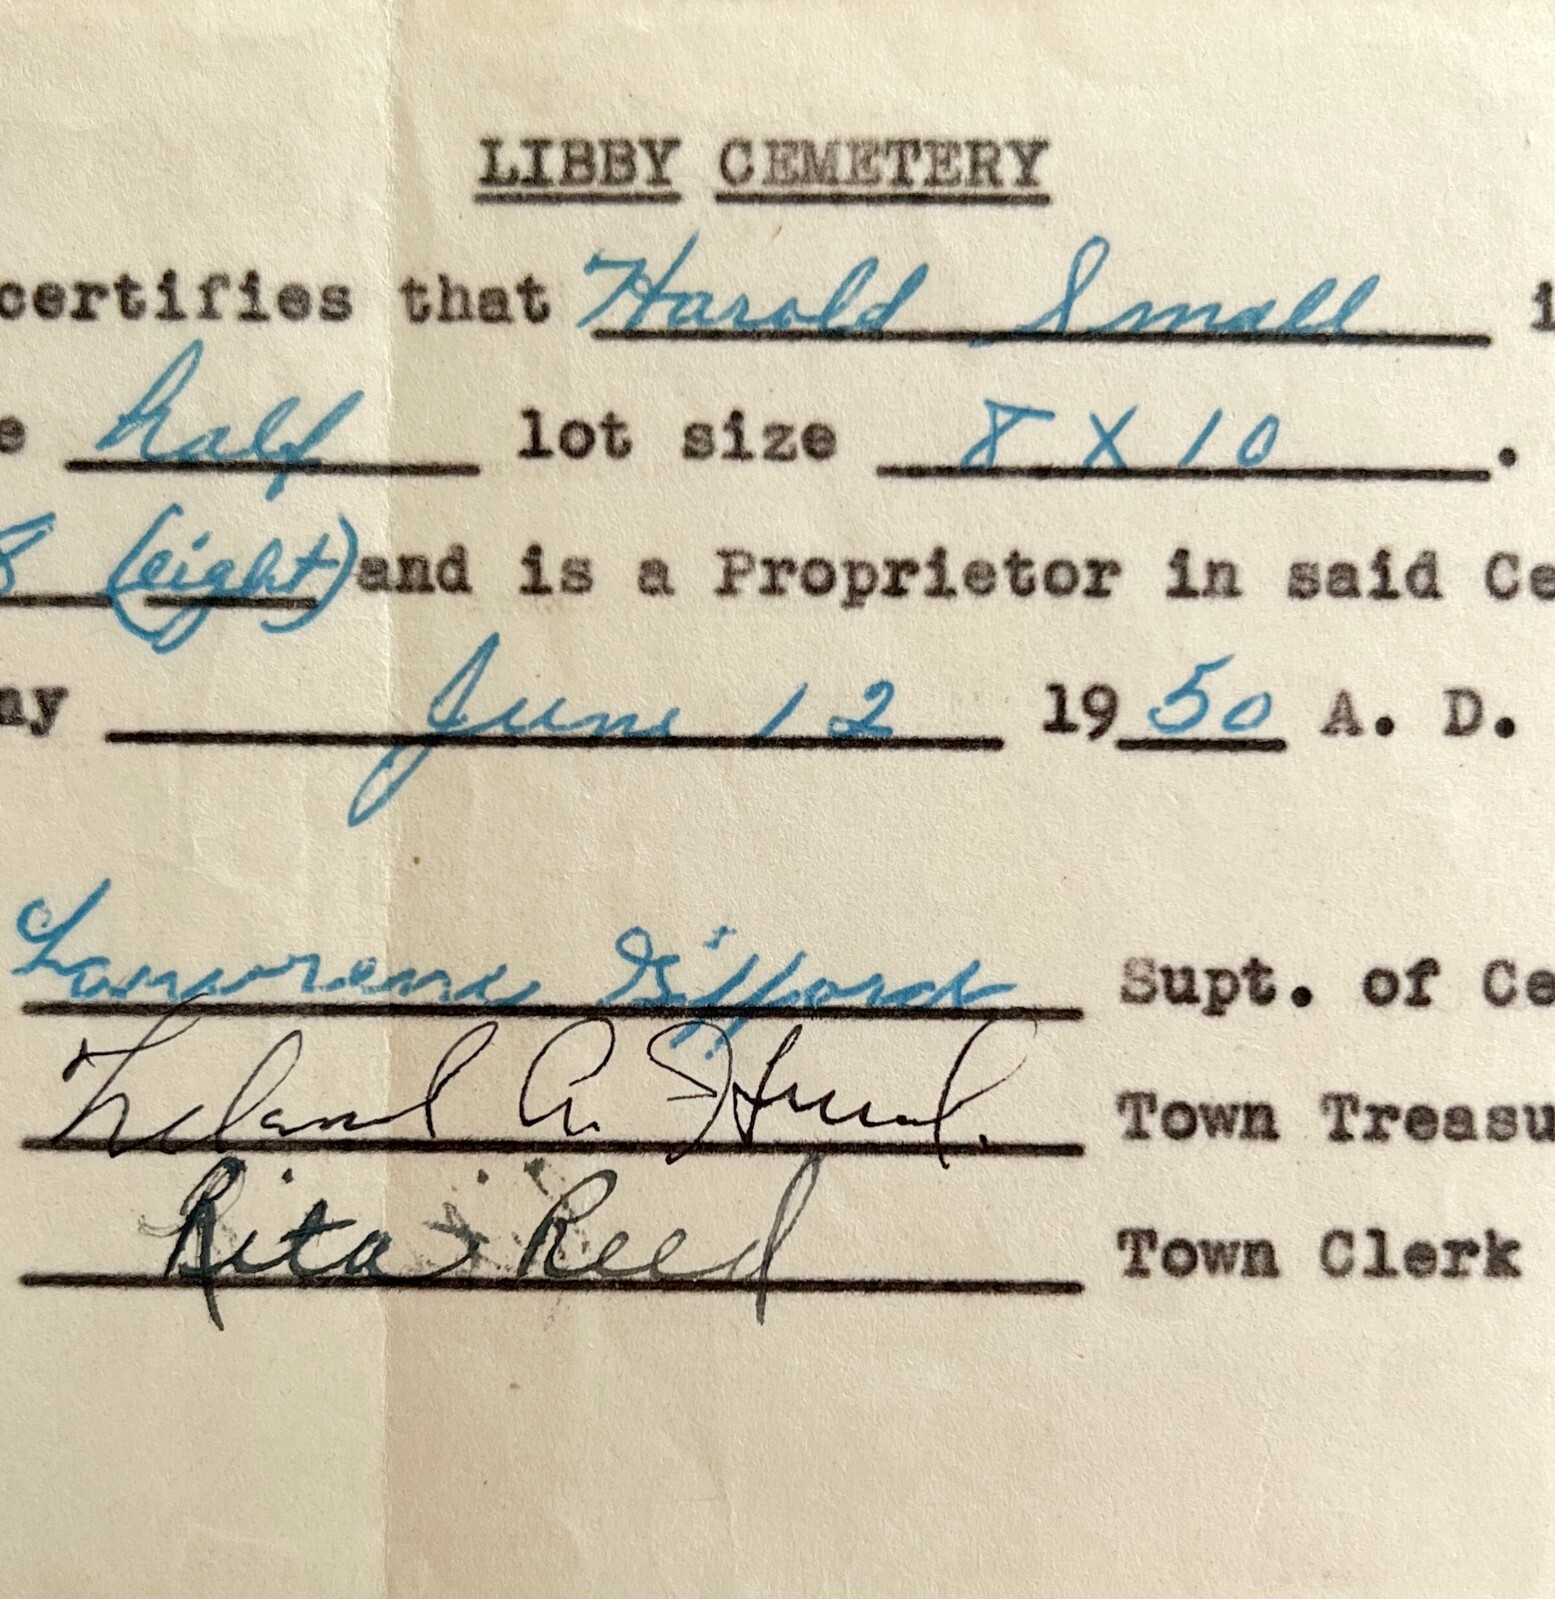 LIBBY CEMETERY
certifies that Harold Small i
e half lot size 8 X 10.
8 (eight) and is a Proprietor in said Ce
ay June 12 1950 A. D.
Lawrence Gifford Supt. of Ce
Leland A. Hurd. Town Treasu
Rita Reed Town Clerk